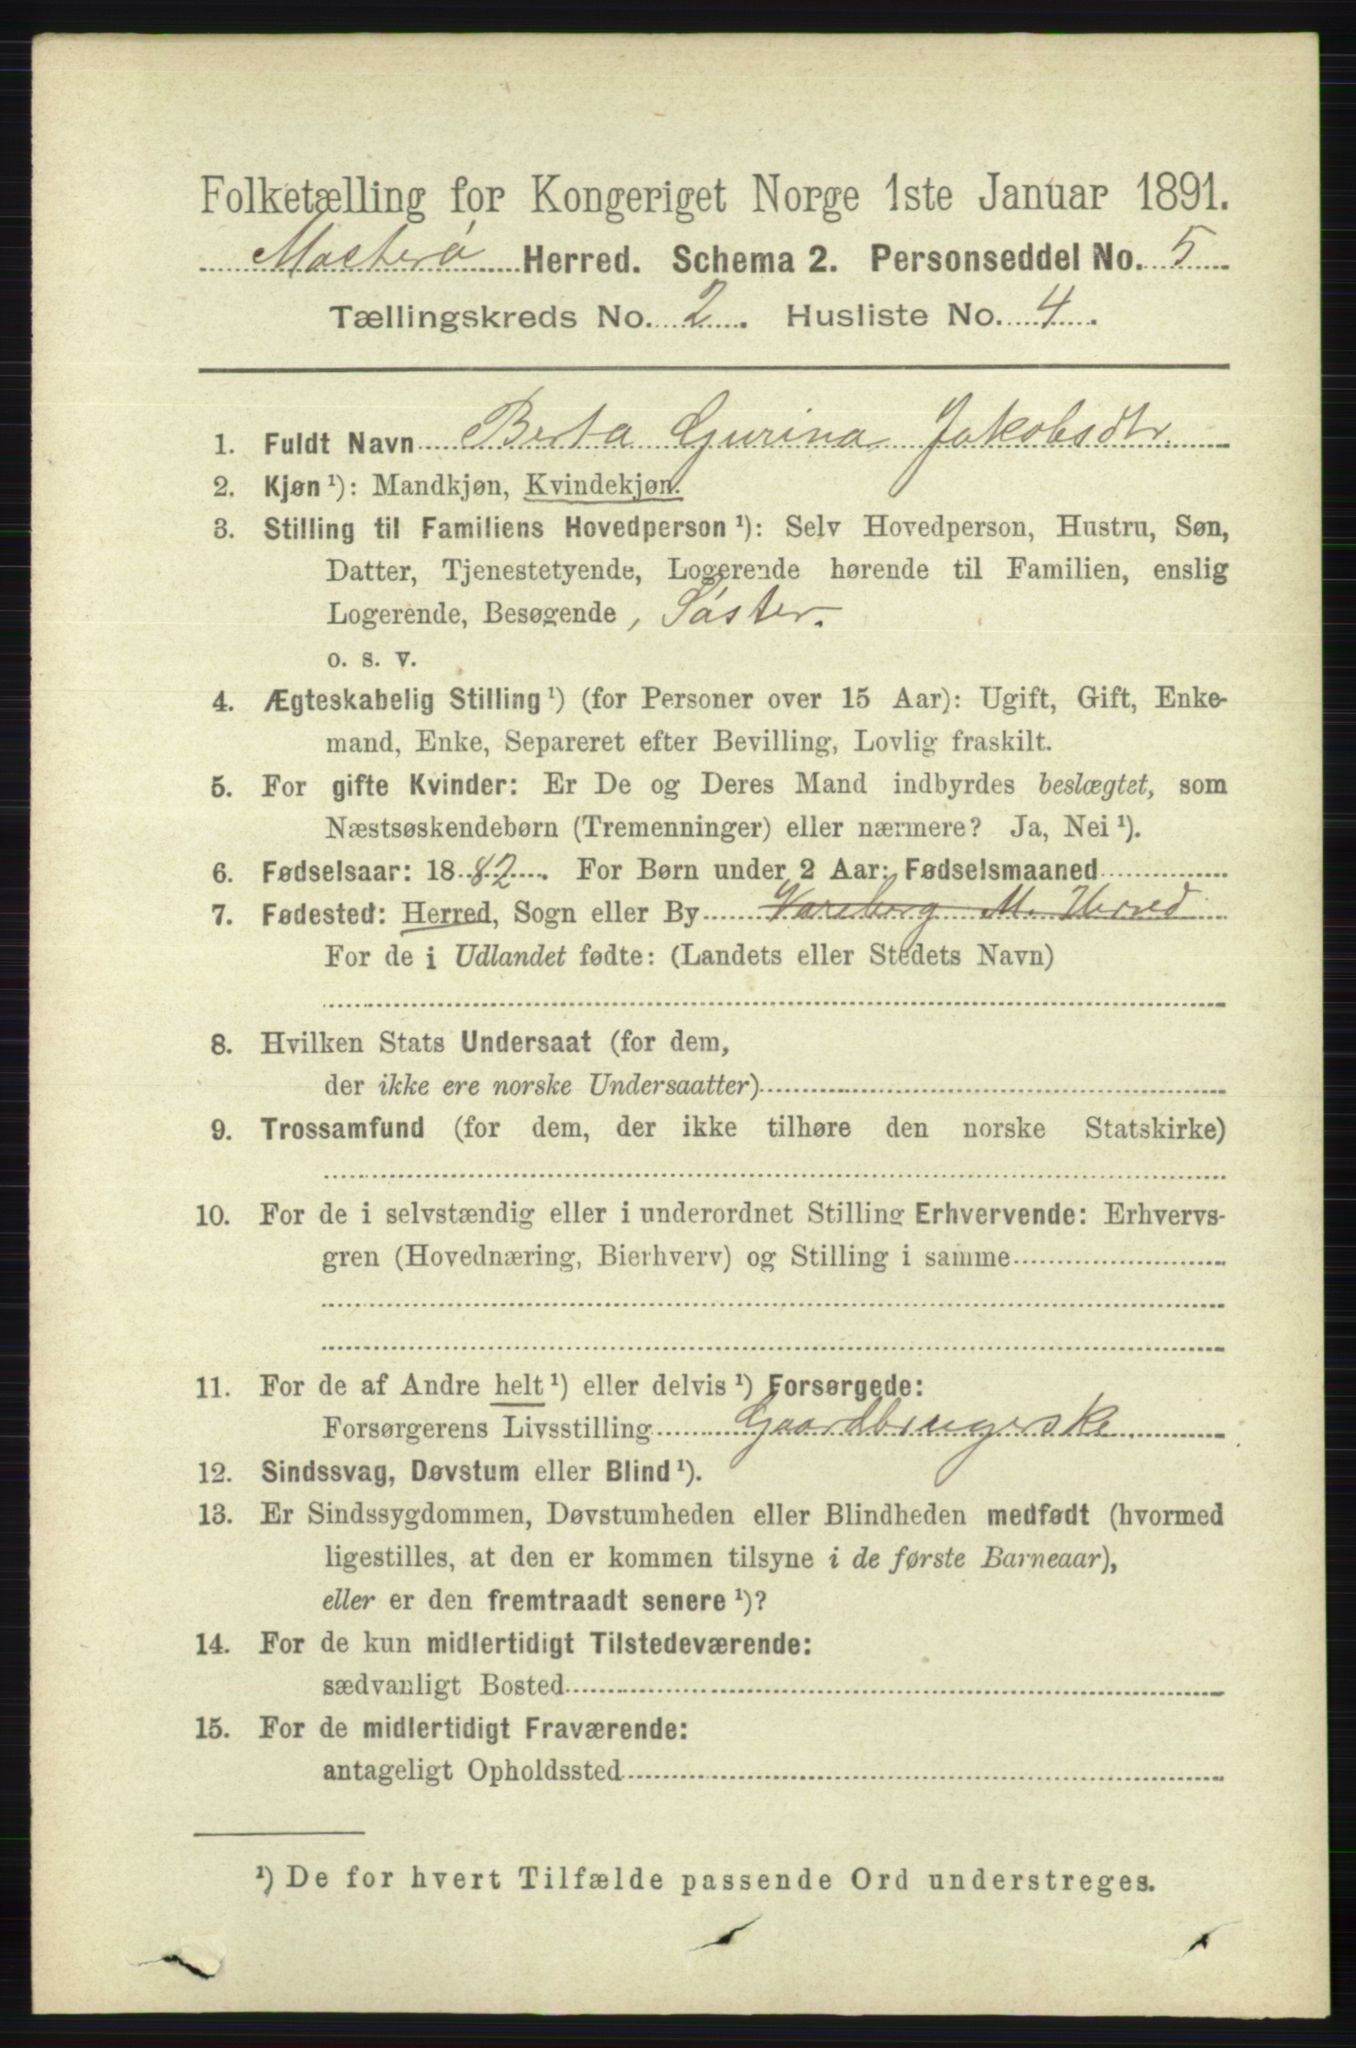 Folketælling for Kongeriget Norge 1ste Januar 1891.
Mosterø Herred. Schema 2. Personseddel No. 5
Tællingskreds No. 2. Husliste No. 4.
1. Fuldt Navn Berta Gurina Jakobsdtr.
2. Kjøn ¹): Mandkjøn, Kvindekjøn.
3. Stilling til Familiens Hovedperson ¹): Selv Hovedperson, Hustru, Søn,
Datter, Tjenestetyende, Logerende hørende til Familien, enslig
Logerende, Besøgende, Søster.
o. s. v.
4. Ægteskabelig Stilling ¹) (for Personer over 15 Aar): Ugift, Gift, Enke-
mand, Enke, Separeret efter Bevilling, Lovlig fraskilt.
5. For gifte Kvinder: Er De og Deres Mand indbyrdes beslægtet, som
Næstsøskendebørn (Tremenninger) eller nærmere? Ja, Nei ¹).
6. Fødselsaar: 1882. For Børn under 2 Aar: Fødselsmaaned
7. Fødested: Herred, Sogn eller By Vareberg M. Herred
For de i Udlandet fødte: (Landets eller Stedets Navn)
8. Hvilken Stats Undersaat (for dem,
der ikke ere norske Undersaatter)
9. Trossamfund (for dem, der ikke tilhøre den norske Statskirke)
10. For de i selvstændig eller i underordnet Stilling Erhvervende: Erhvervs-
gren (Hovednæring, Bierhverv) og Stilling i samme
11. For de af Andre helt ¹) eller delvis ¹) Forsørgede:
Forsørgerens Livsstilling Gaardbrugerske.
12. Sindssvag, Døvstum eller Blind ¹).
13. Er Sindssygdommen, Døvstumheden eller Blindheden medfødt (hvormed
ligestilles, at den er kommen tilsyne i de første Barneaar),
eller er den fremtraadt senere ¹)?
14. For de kun midlertidigt Tilstedeværende:
sædvanligt Bosted
15. For de midlertidigt Fraværende:
antageligt Opholdssted
¹) De for hvert Tilfælde passende Ord understreges.